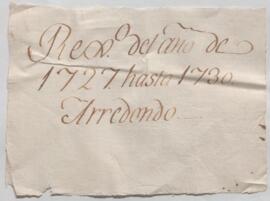 Rex.º del año de
1727. hasta 1730.
Arredondo